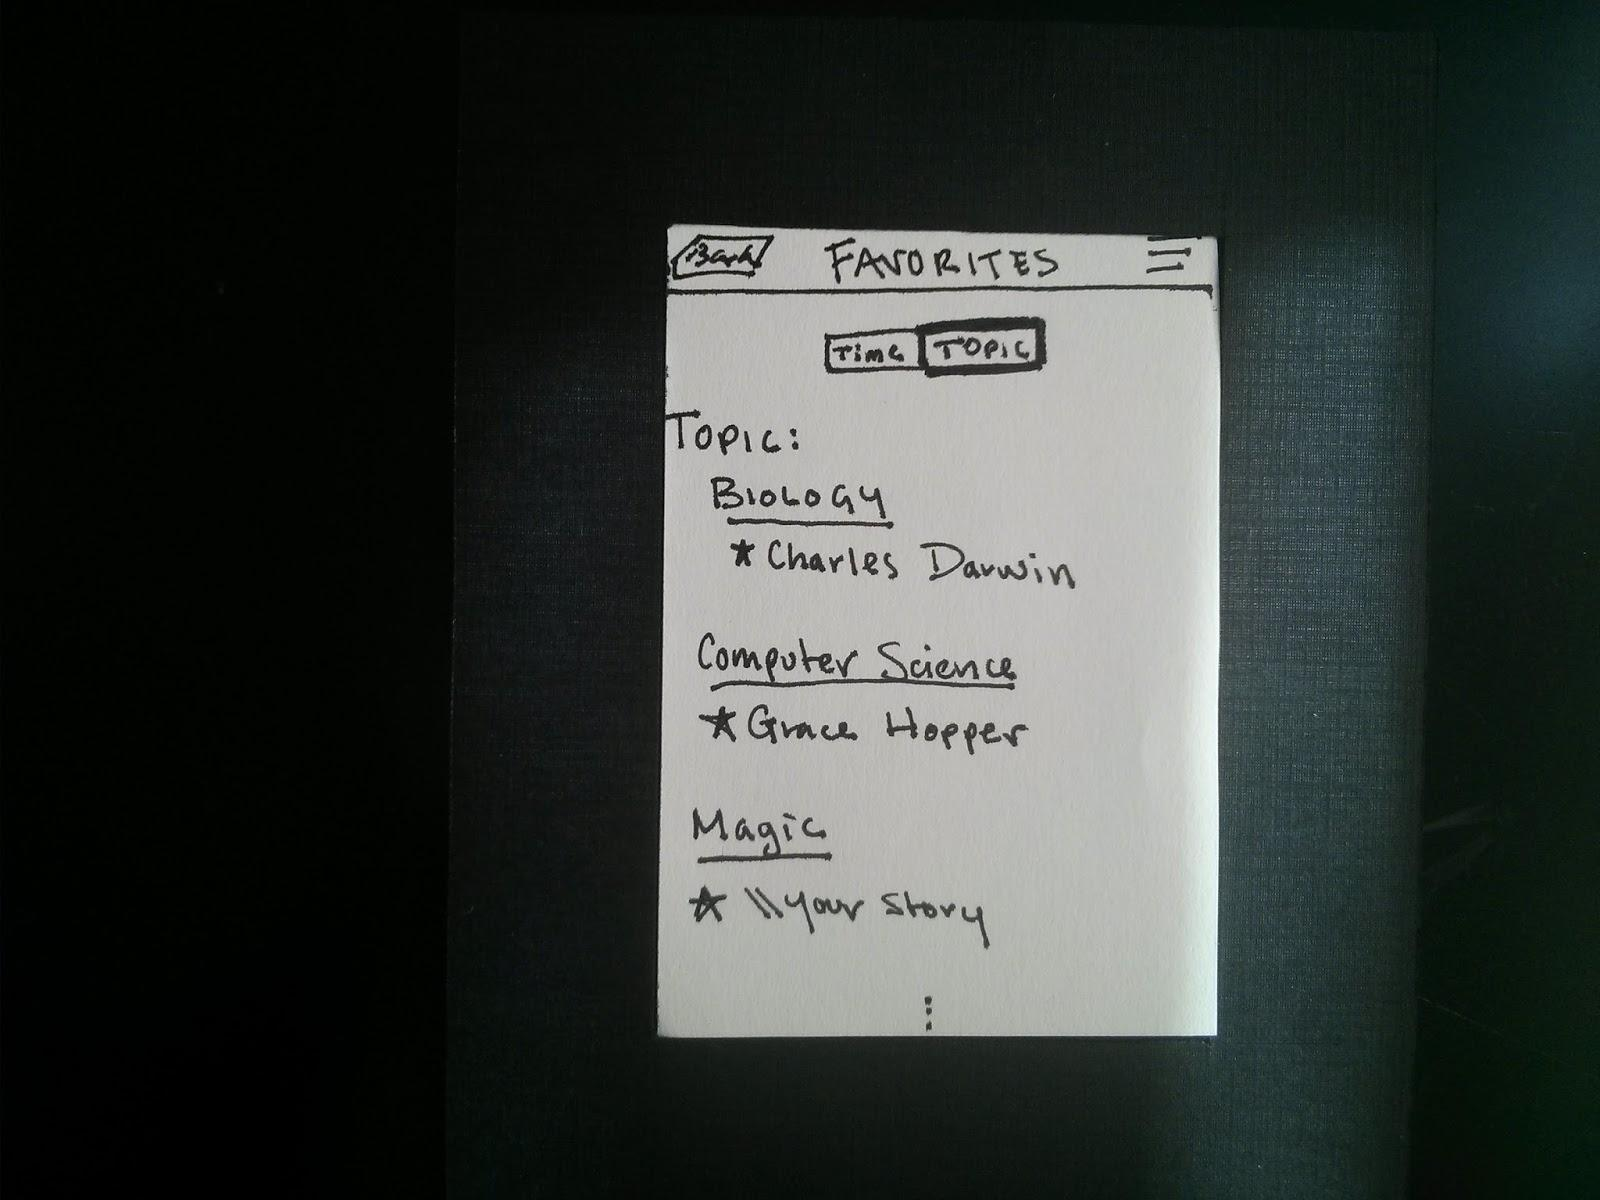 Back FAVORITES
Time TOPIC
TOPIC:
BIOLOGY
★ Charles Darwin
Computer Science
★ Grace Hopper
Magic
★ \\your story
⋮